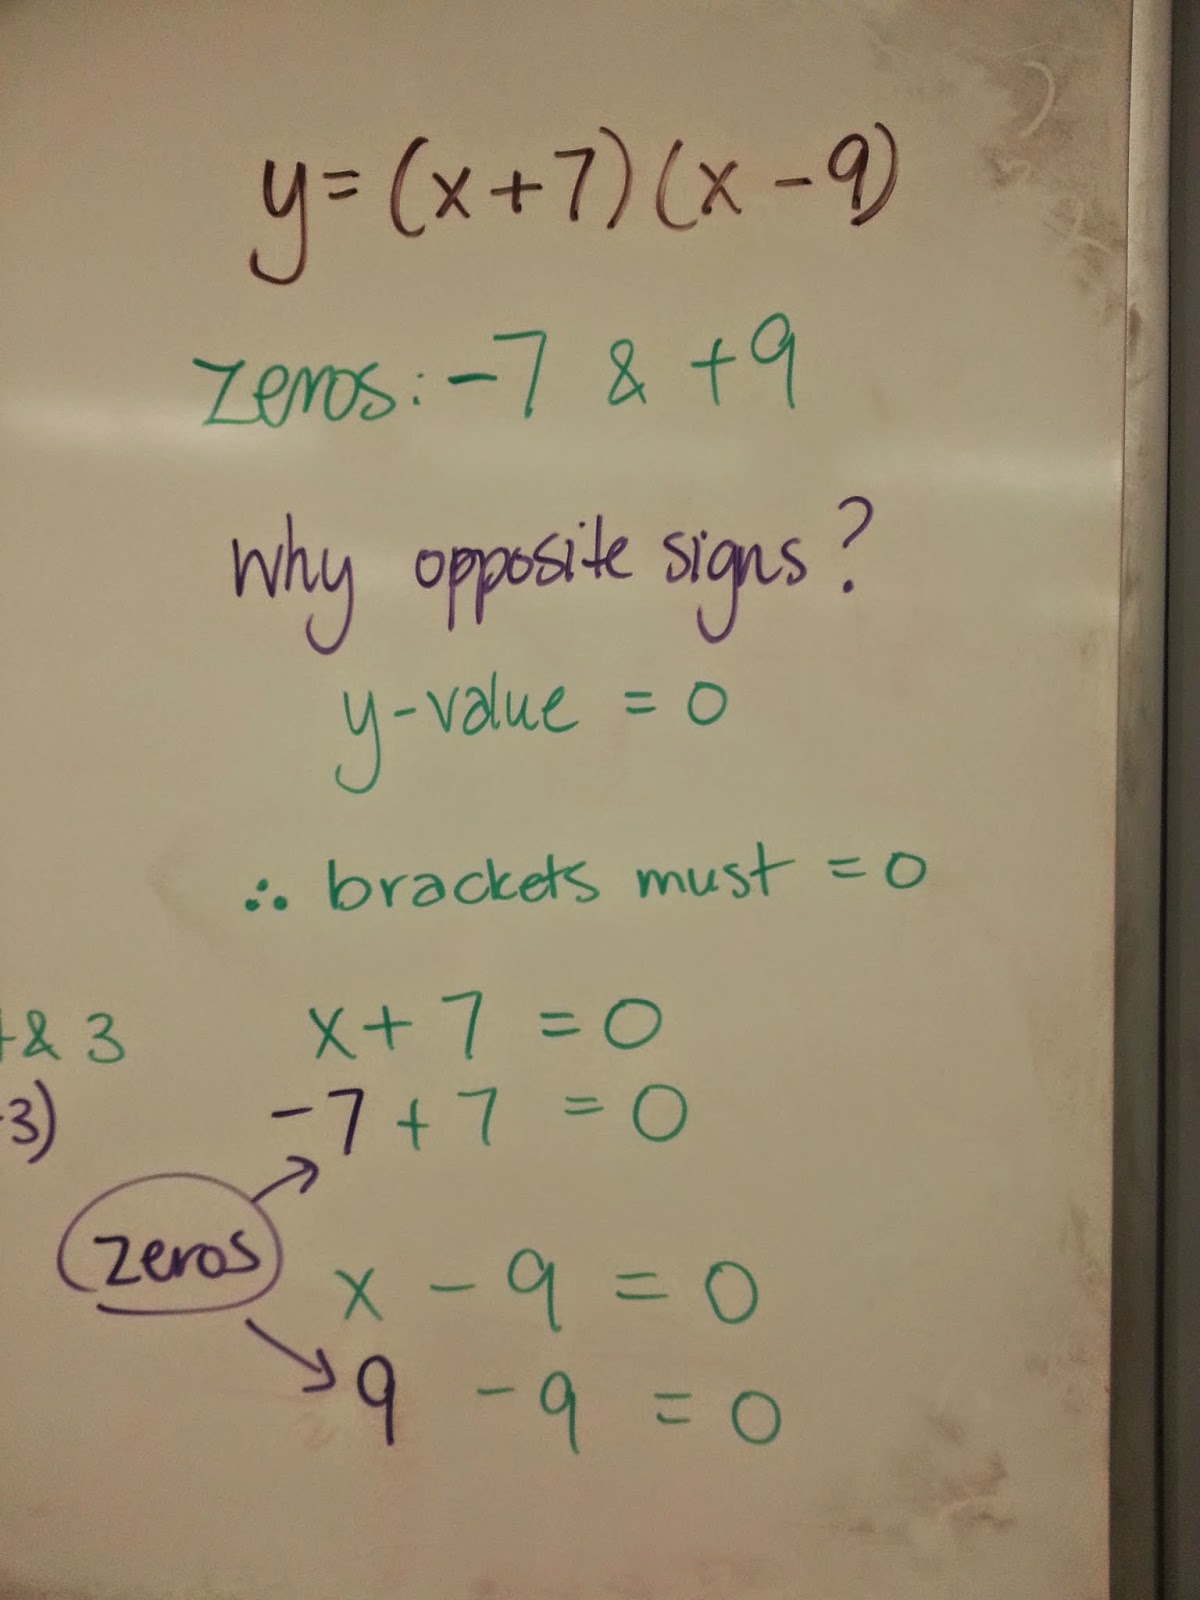 y = (x + 7) (x - 9)
zeros: -7 & +9
why opposite signs?
y-value = 0
∴ brackets must = 0
x + 7 = 0
& 3
-7 + 7 = 0
3)
zeros
x - 9 = 0
9 - 9 = 0